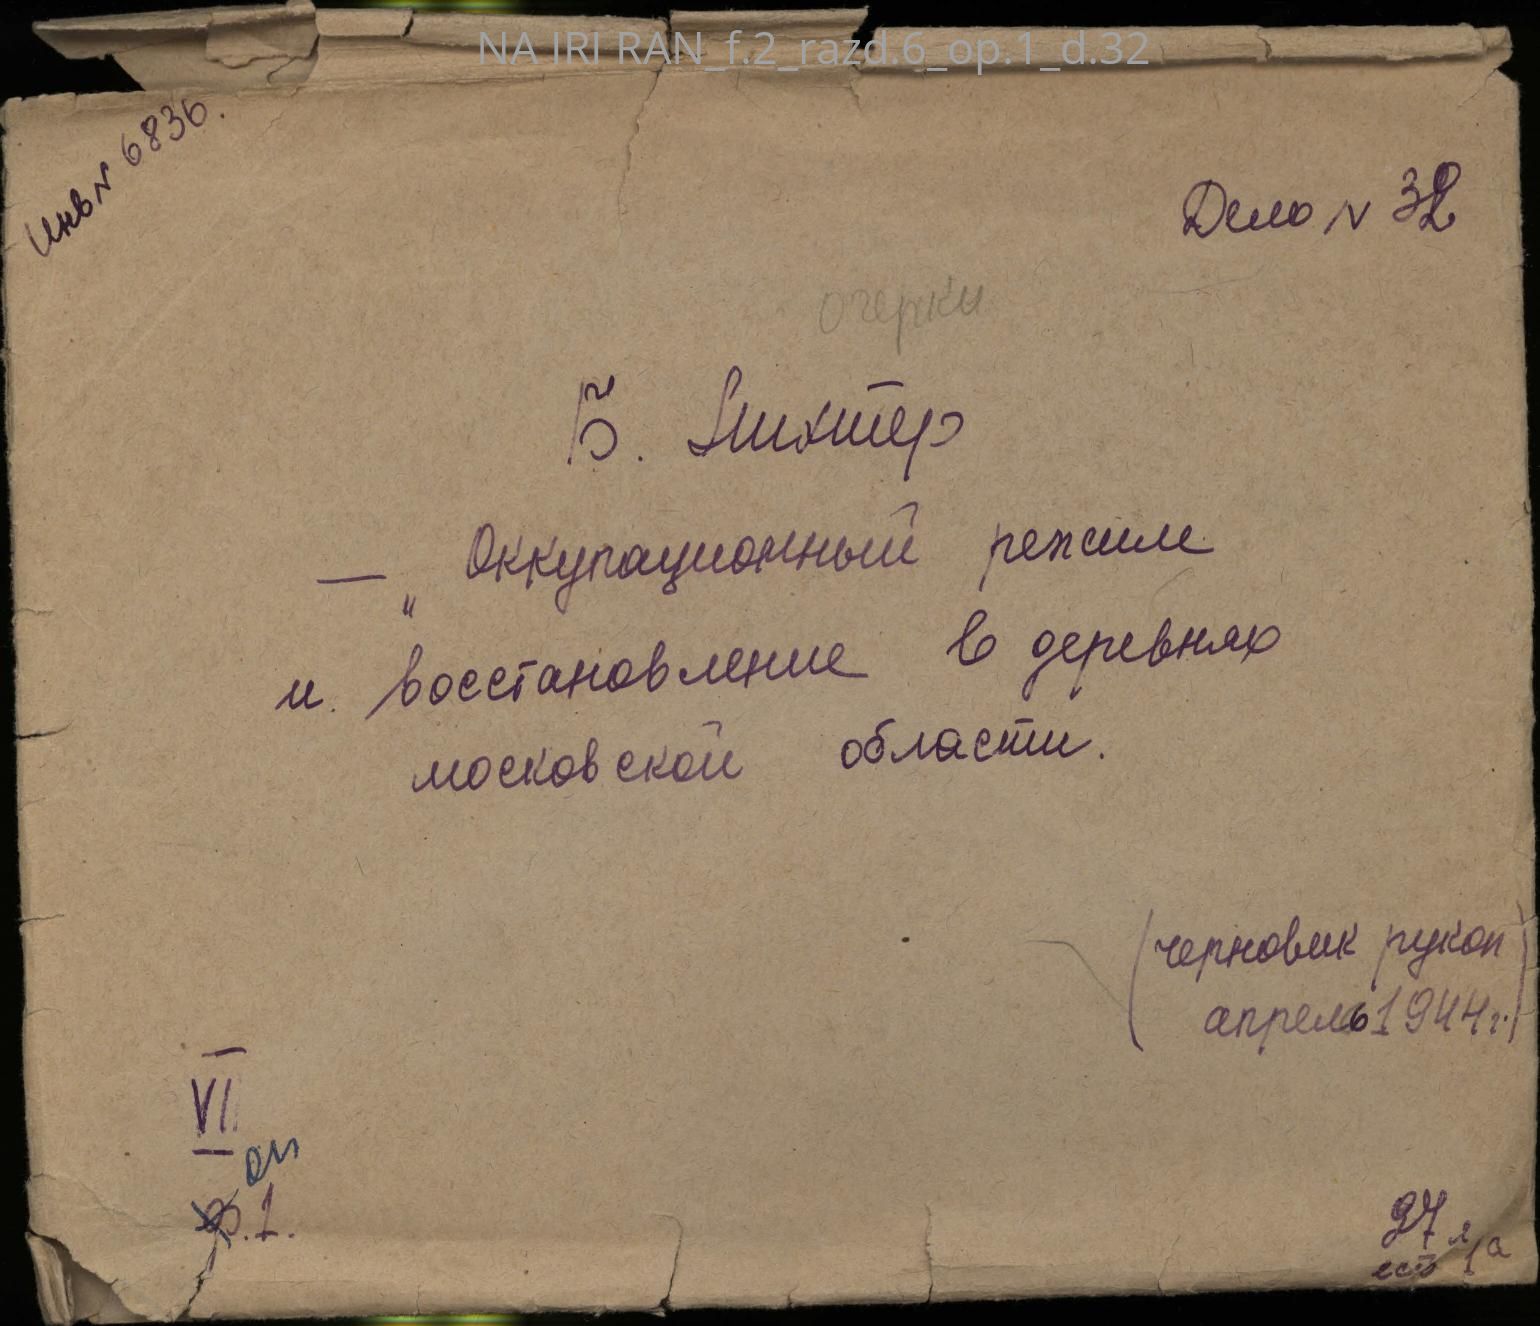 NA IRI RAN_f.2_razd.6_op.1_d.32
Инв N 6836.
Дело N 32
очерки
Б. Лихтер
— „ Оккупационный режим
и восстановление в деревнях
московской области.
(черновик рукоп
апрель 1944 г.)
VI
оп
ф.1.
97 л
есть 1а